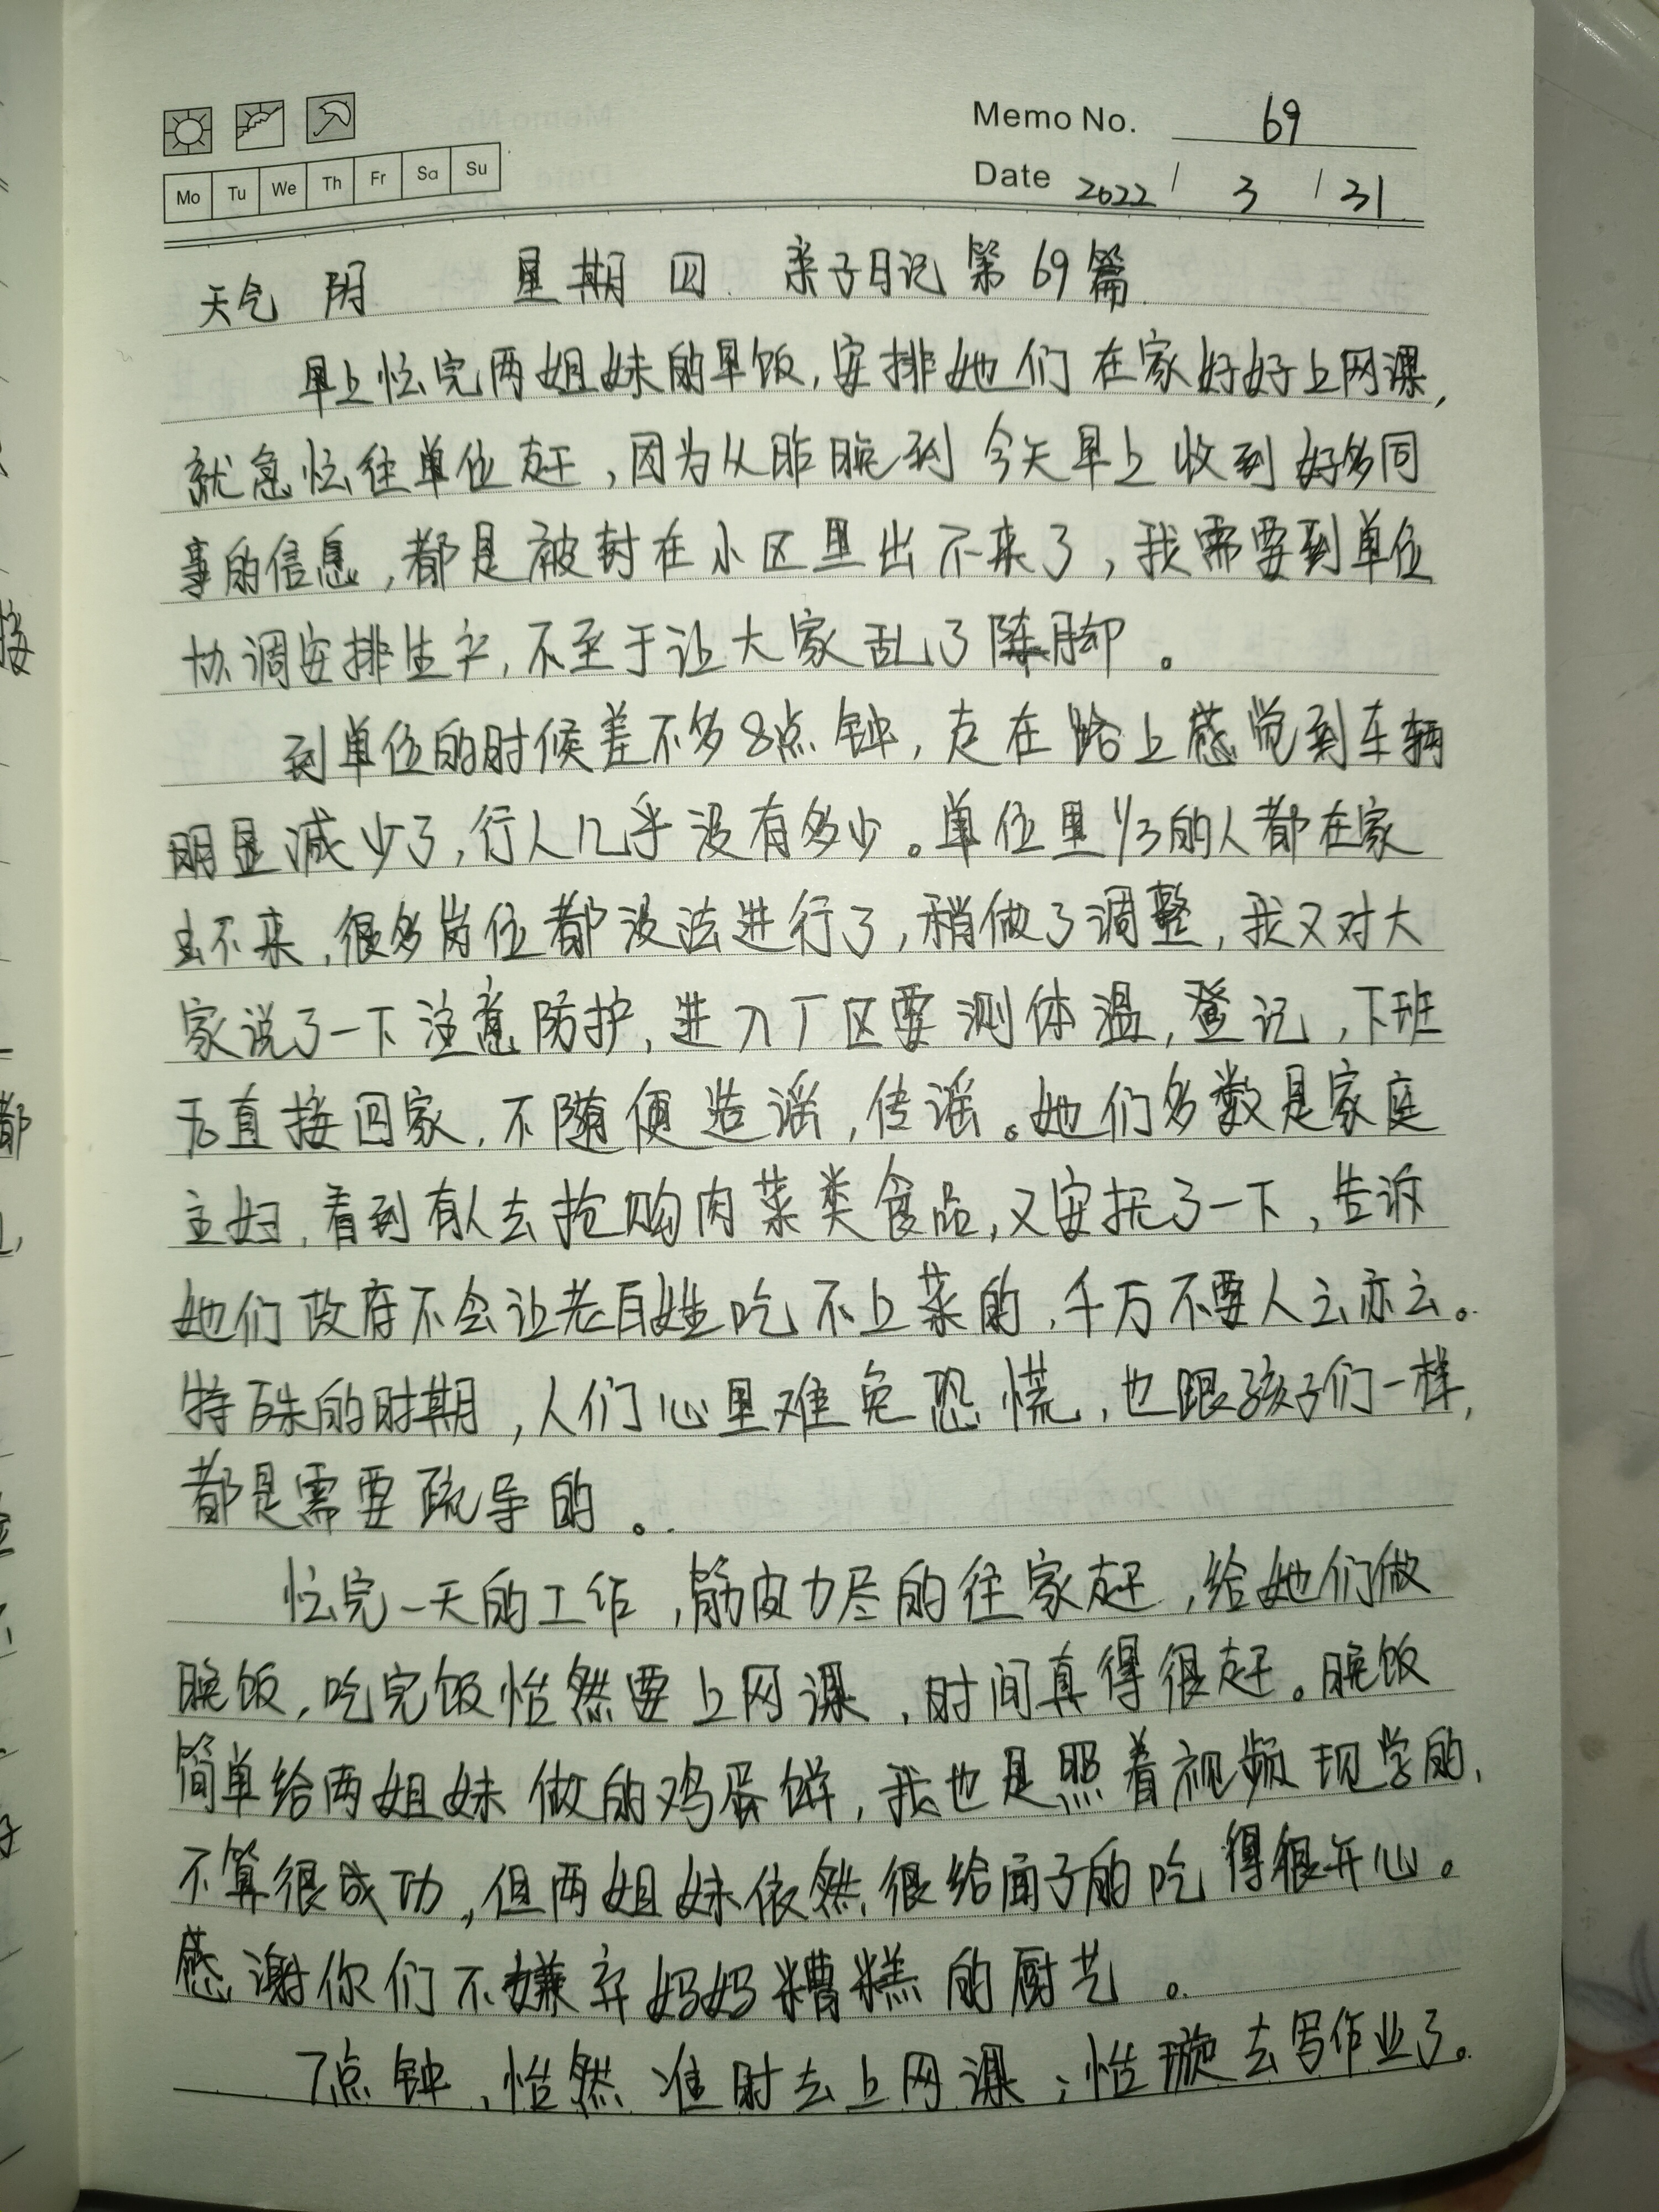 Memo No. 69
Mo Tu We Th Fr Sa Su
Date 2022 / 3 / 31
天气 阴 星期四 亲子日记第69篇
早上忙完两姐妹的早饭,安排她们在家好好上网课,
就急忙往单位赶,因为从昨晚到今天早上收到好多同
事的信息,都是被封在小区里出不来了,我需要到单位
协调安排生产,不至于让大家乱了阵脚。
到单位的时候差不多8点钟,走在路上感觉到车辆
明显减少了,行人几乎没有多少。单位里1/3的人都在家
出不来,很多岗位都没法进行了,稍做了调整,我又对大
家说了一下注意防护,进入厂区要测体温,登记,下班
后直接回家,不随便造谣,传谣。她们多数是家庭
主妇,看到有人去抢购肉菜类食品,又安抚了一下,告诉
她们政府不会让老百姓吃不上菜的,千万不要人云亦云。
特殊的时期,人们心里难免恐慌,也跟孩子们一样,
都是需要疏导的。
忙完一天的工作,筋皮力尽的往家赶,给她们做
晚饭,吃完饭怡然要上网课,时间真得很赶。晚饭
简单给两姐妹做的鸡蛋饼,我也是照着视频现学的,
不算很成功,但两姐妹依然很给面子的吃得很开心。
感谢你们不嫌弃妈妈糟糕的厨艺。
7点钟,怡然准时去上网课;怡璇去写作业了。